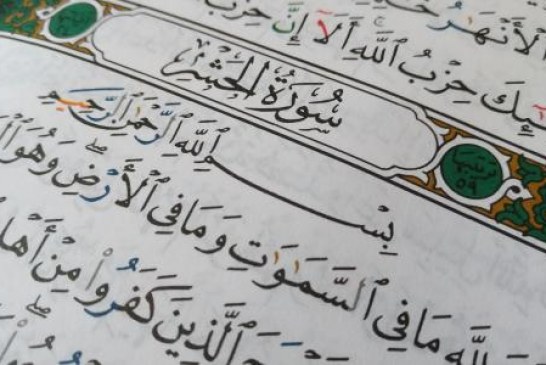 ٱلْأَنْهَٰرُ
ئِكَ حِزْبُ ٱللَّهِ أَلَآ إِنَّ حِزْبَ
سُورَةُ الحَشْرِ
ترتيبها ٥٩
بِسْمِ ٱللَّهِ ٱلرَّحْمَٰنِ ٱلرَّحِيمِ
لِلَّهِ مَا فِي ٱلسَّمَٰوَٰتِ وَمَا فِي ٱلْأَرْضِ وَهُوَ
ٱلَّذِينَ كَفَرُوا۟ مِنْ أَهْلِ